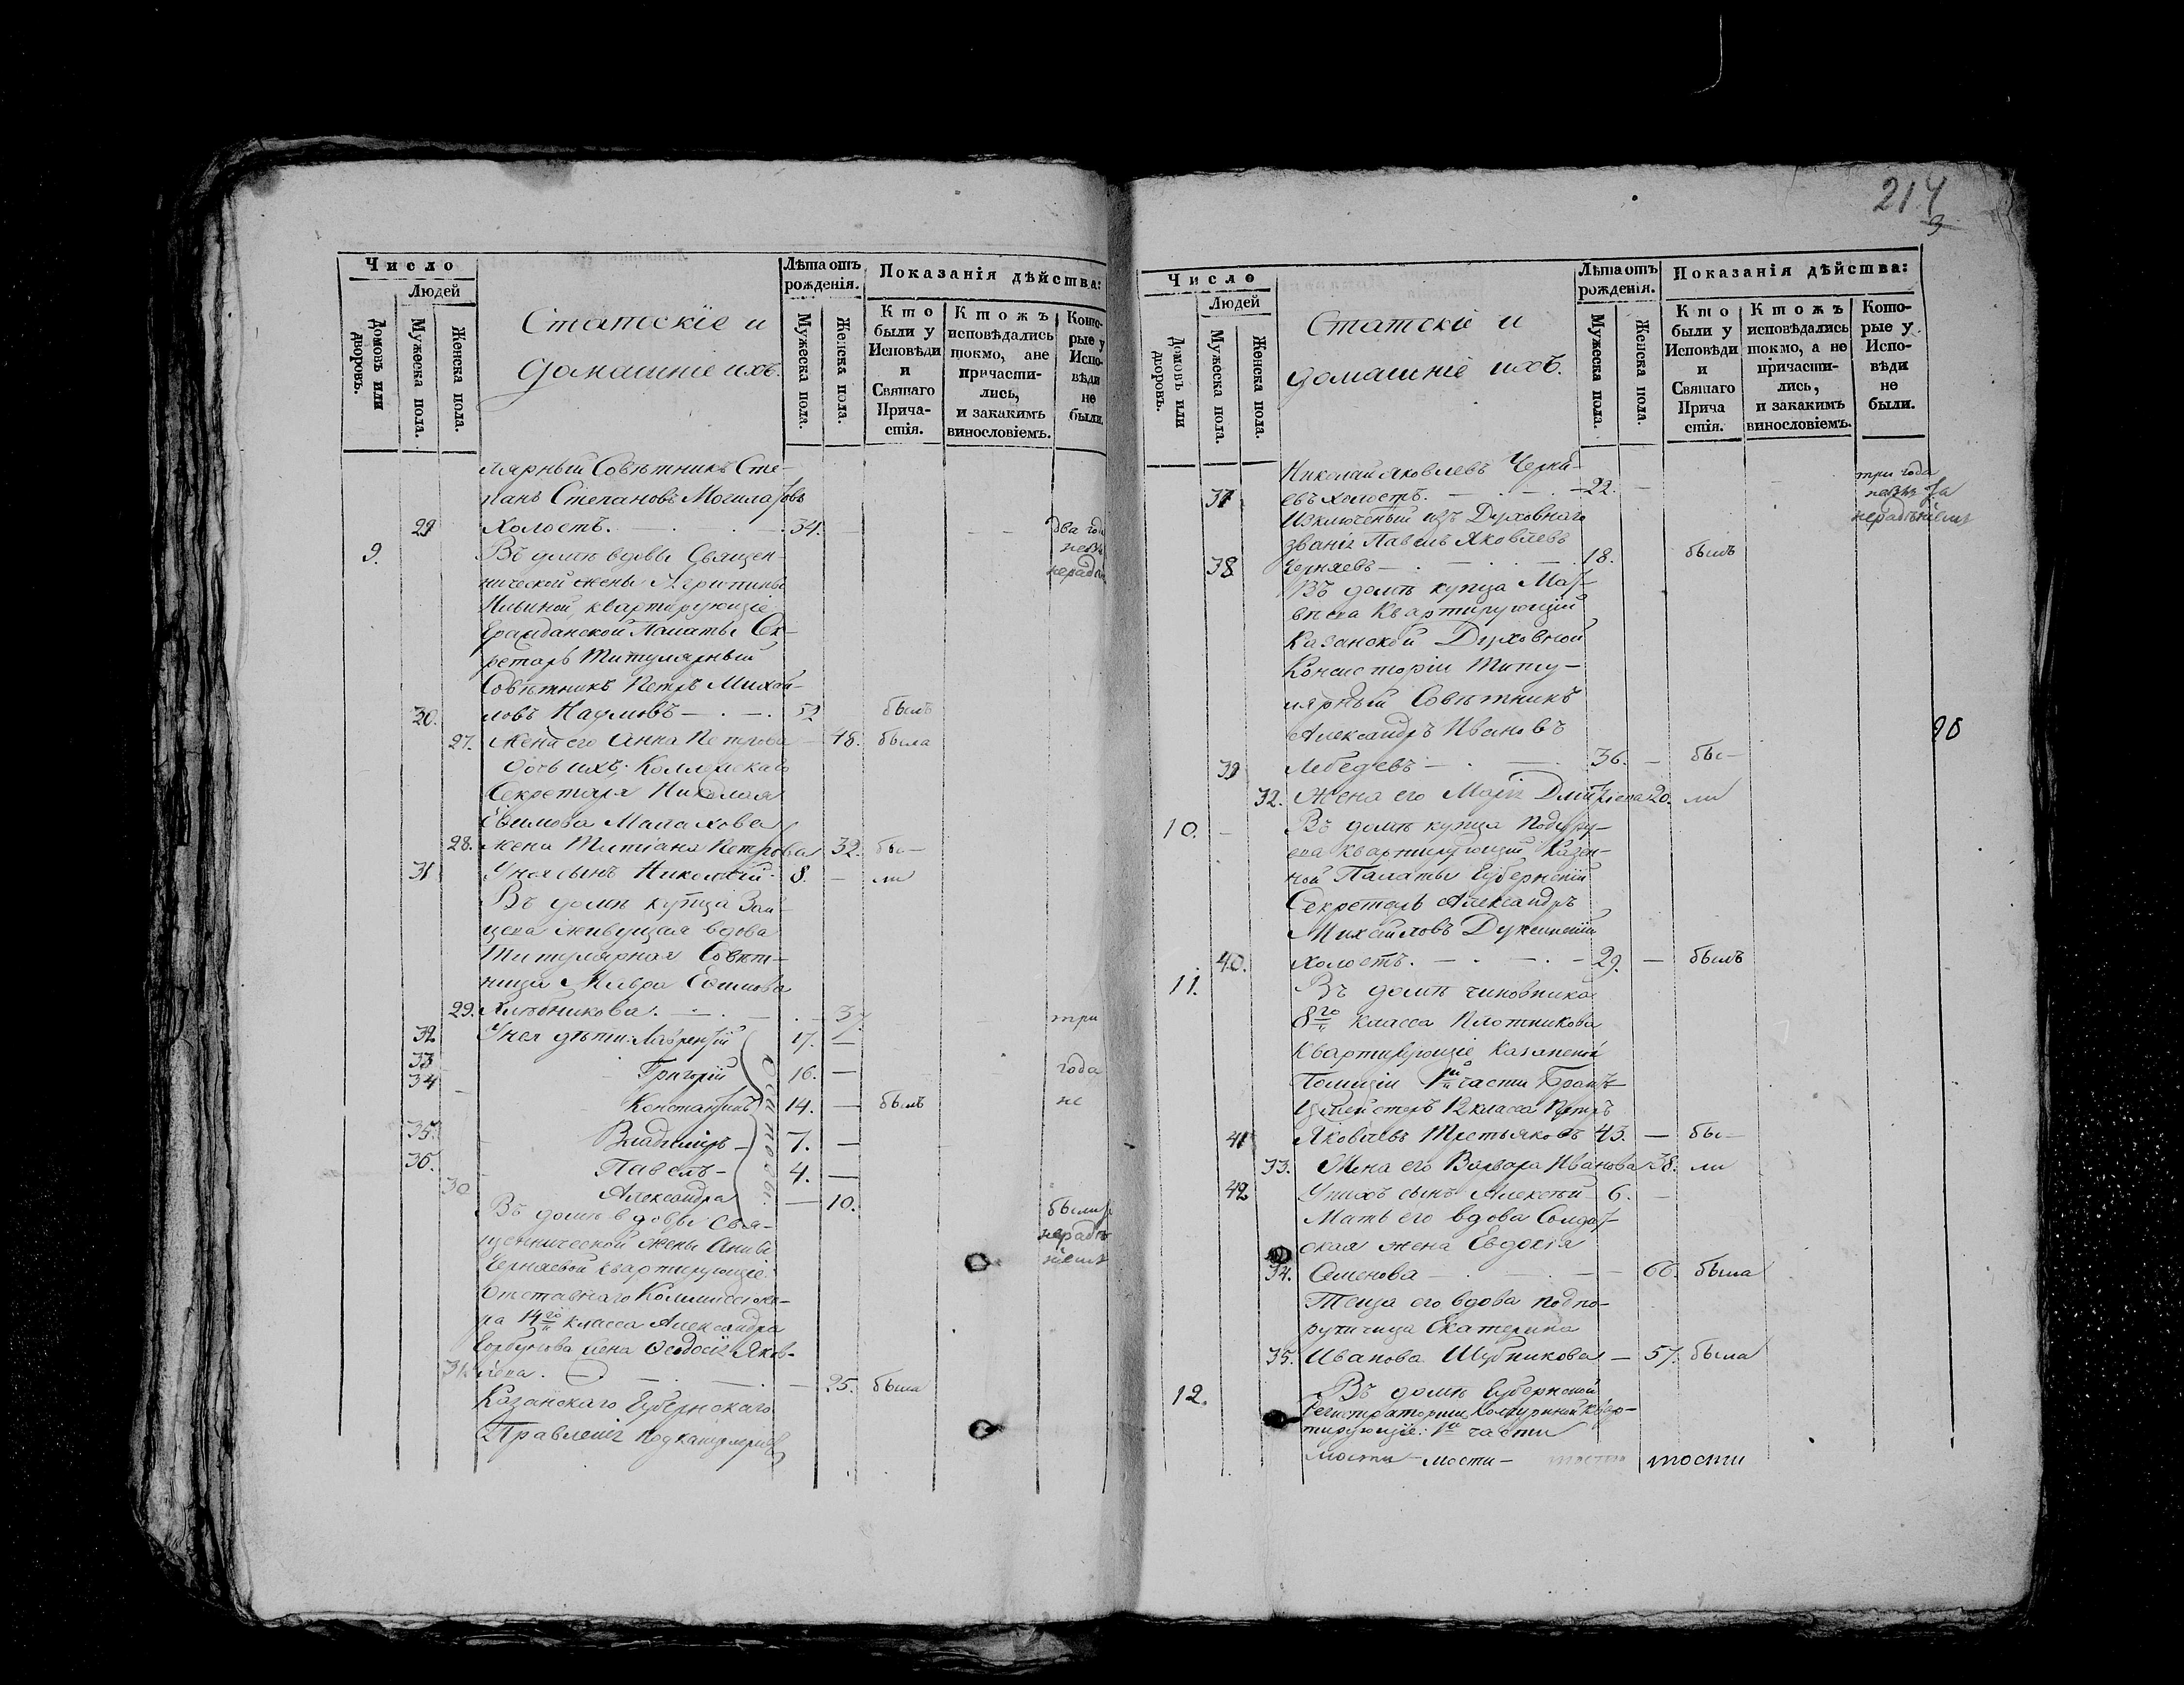 214
3
Число
Людей
Домовъ или дворовъ.
Мужеска пола.
Женска пола.
Статскіе и
домашніе ихъ.
Лѣта отъ рожденія.
Мужеска пола.
Женска пола.
Показанія дѣйства:
Кто были у Исповѣди и Святаго Прича-стія.
Ктожъ исповѣдались токмо, ане причасти-лись, и закакимъ винословіемъ.
Кото-рые у Испо-вѣди не были.
лярный Совѣтникъ Сте-
панъ Степановъ
29 Холостъ. — 34. — два
9. Въ домѣ вдовы Священ-
нической жены Агрипины
Ильиной, квартирующіе
Гражданской Палаты Се-
кретарь Титулярный
Совѣтникъ Петръ Михай-
30. ловъ Наумовъ — . — . 52 былъ
27. Жена его Анна Петрова — 48. была
дочь ихъ, Коллежскаго
Секретаря Николая
Ефимова Малахова
28. жена Татіана Петрова 32. бы—
31 У нея сынъ Николай. 8. — ли
Въ домѣ купца Зай-
цева живущая вдова
Титулярная Совѣт-
ница Мавра Ефимова
29. Хлѣбникова. — 37. три
32 У нея дѣти: Лаврентій 17. —
33 Григорій 16. — года
34 Константинъ 14. — былъ не
35. Владиміръ — 7. —
36. Павелъ — 4. —
30 Александра — 10. были
Въ домѣ вдовы Свя-
щеннической жены Анны
Черняевой квартирующіе:
Отставнаго Коммиссіоне-
ра 14го класса Александра
Горбунова жена Феодосія Яков-
31. лева. — 25. была
Казанскаго Губернскаго
Правленія Подканцеляристъ
Число
Людей
Домовъ или дворовъ.
Мужеска пола.
Женска пола.
Статскіе и
домашніе ихъ.
Лѣта отъ рожденія.
Мужеска пола.
Женска пола.
Показанія дѣйства:
Кто были у Исповѣди и Святаго Прича стія.
Ктожъ исповѣдались токмо, а не причасти-лись, и закакимъ винословіемъ.
Кото-рые у Испо-вѣди не были.
Николай Яковлевъ Черня- три года
37 евъ холостъ. — . — . — 22. — за
Изключеный изъ Духовнаго нерадѣніемъ
званія Павелъ Яковлевъ
38 Черняевъ — . — 18. былъ
Въ домѣ купца Мат-
вѣева Квартирующій
Казанской Духовной
Консисторіи Титу-
лярный Совѣтникъ
Александръ Ивановъ
39 Лебедевъ — . — 36. — бы—
32. Жена его Марія Дмитріева 20. ли
10. — Въ домѣ купца
ева квартирующій Казен-
ной Палаты Губернскій
Секретарь Александръ
Михайловъ
40. холостъ. — . — . — 29. — былъ
11. Въ домѣ чиновника
8го класса Плотникова
Квартирующіе Казанской
Полиціи 1й части Брант-
мейстеръ 12 класса Петръ
41 Яковлевъ Третьяковъ 43. — бы—
33. Жена его Варвара Иванова 38. ли
42 У нихъ сынъ Алексѣй — 6. —
Мать его вдова Солдат-
ская жена Евдокія
34. Семенова — 66. была
Теща его вдова подпо-
ручица Екатерина
35. Иванова Шубникова — 57. была
12. Въ домѣ Губернской
Регистраторши квар-
тирующіе: 1й части